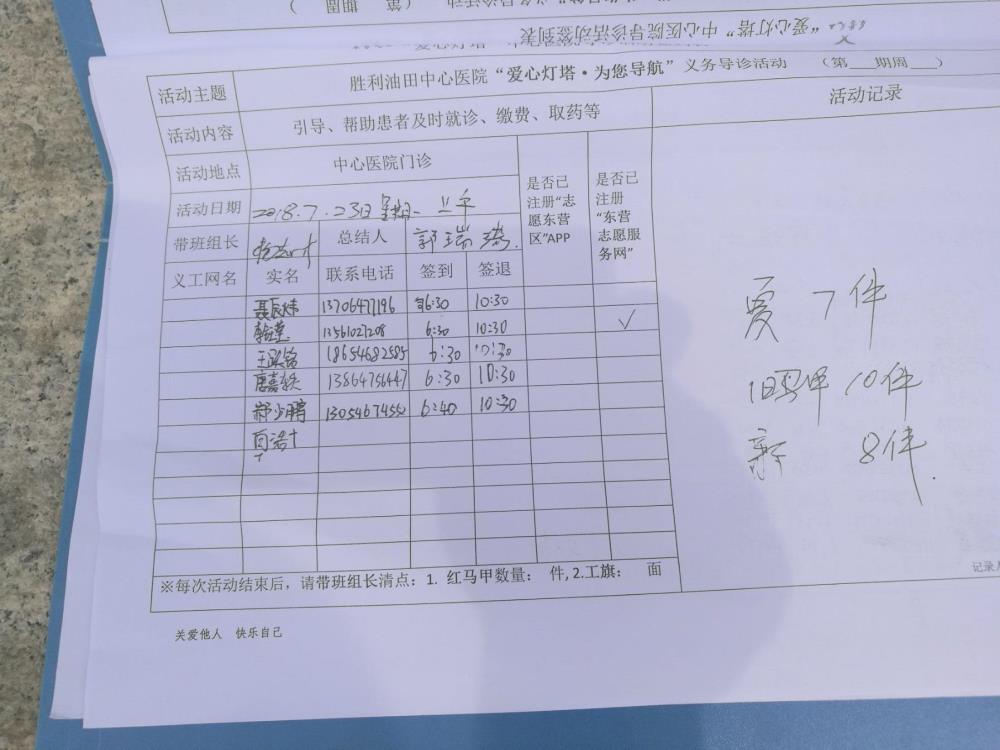 “爱心灯塔” 中心医院导诊活动签到表
活动主题 胜利油田中心医院“爱心灯塔·为您导航”义务导诊活动 (第___期周___)
活动内容 引导、帮助患者及时就诊、缴费、取药等 活动记录
活动地点 中心医院门诊 是否已注册“志愿东营区”APP 是否已注册“东营志愿服务网”
活动日期 2018.7.23日 星期一 上午
带班组长 总结人 郭瑞
义工网名 实名 联系电话 签到 签退
13706477196 6:30 10:30
13561027208 6:30 10:30 ✓
王 18654682585 6:30 10:30
唐嘉轶 13864756447 6:30 10:30
郑少鹏 1305467455 6:40 10:30
贾 7件
旧马甲 10件
新 8件.
※每次活动结束后，请带班组长清点：1. 红马甲数量： 件, 2.工旗： 面
记录人
关爱他人 快乐自己